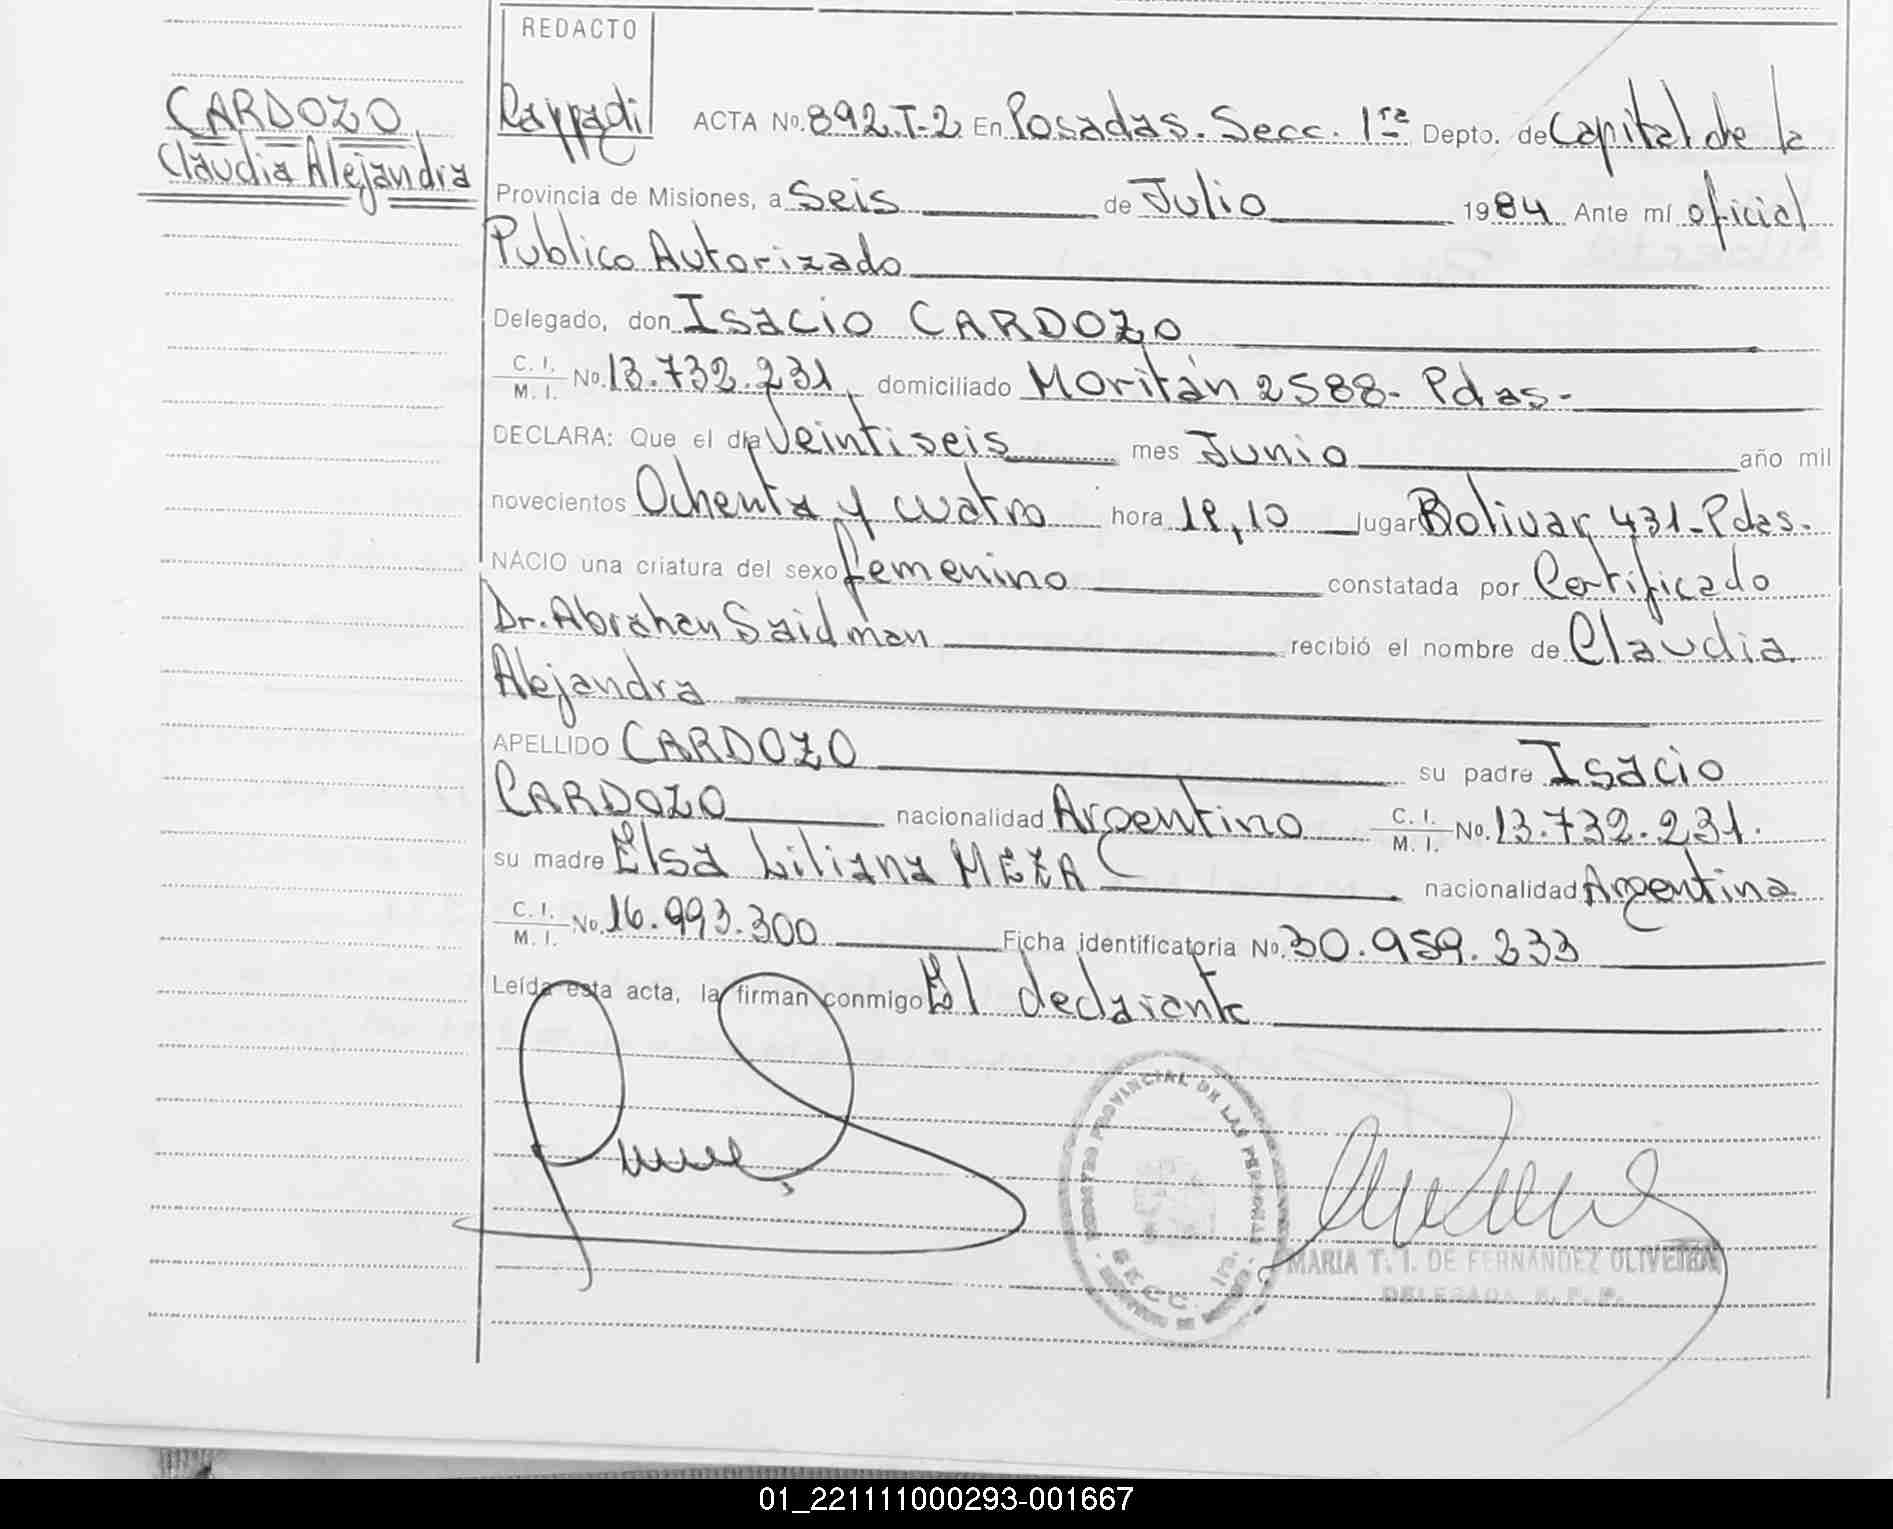 REDACTO
CARDOZO
Claudia Alejandra
ACTA No. 892.T-2 En Posadas. Secc. 1ra Depto. de Capital de la
Provincia de Misiones, a Seis de Julio 1984 Ante mí oficial
Publico Autorizado
Delegado, don Isacio CARDOZO
C. I.
M. I. No. 13.732.231 domiciliado Moritán 2588- Pdas-
DECLARA: Que el día Veintiseis mes Junio año mil
novecientos Ochenta y cuatro hora 19,10 lugar Bolivar 431-Pdas.
NACIO una criatura del sexo femenino constatada por Certificado
Dr. Abrahan Saidman recibió el nombre de Claudia
Alejandra
APELLIDO CARDOZO su padre Isacio
CARDOZO nacionalidad Argentino C. I.
M. I. No. 13.732.231.
su madre Elsa Liliana MEZA nacionalidad Argentina
C. I.
M. I. No. 16.993.300 Ficha identificatoria No. 30.959.233
Leída esta acta, la firman conmigo El declarante
REGISTRO PROVINCIAL DE LAS PERSONAS
SECC. 1ra.
MARIA T. I. DE FERNANDEZ OLIVEIRA
DELEGADA R.P.P.
01_221111000293-001667